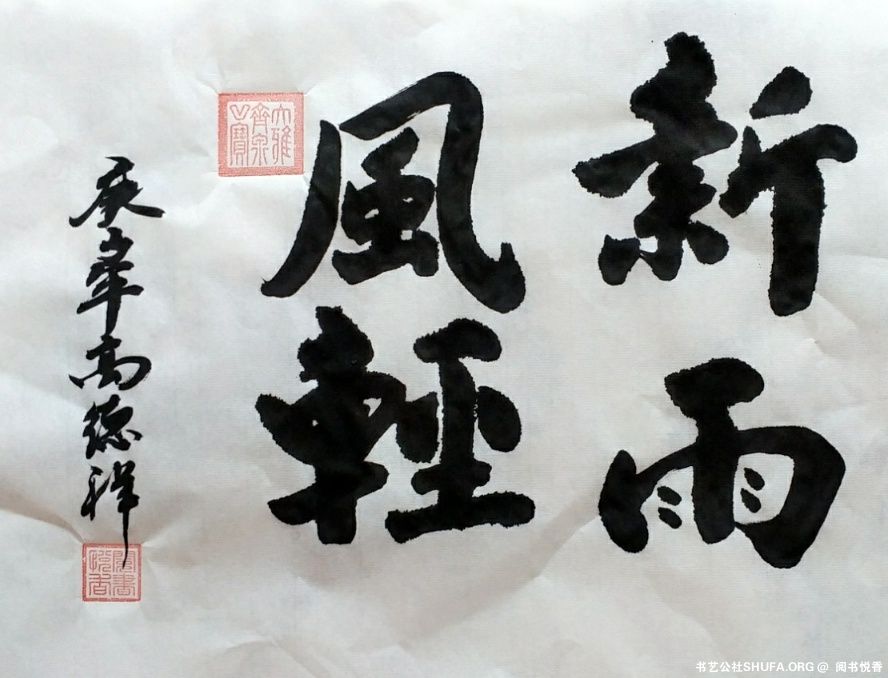 新雨
風輕
庚子年高德祥
閱書
悅香
书艺公社SHUFA.ORG @ 阅书悦香